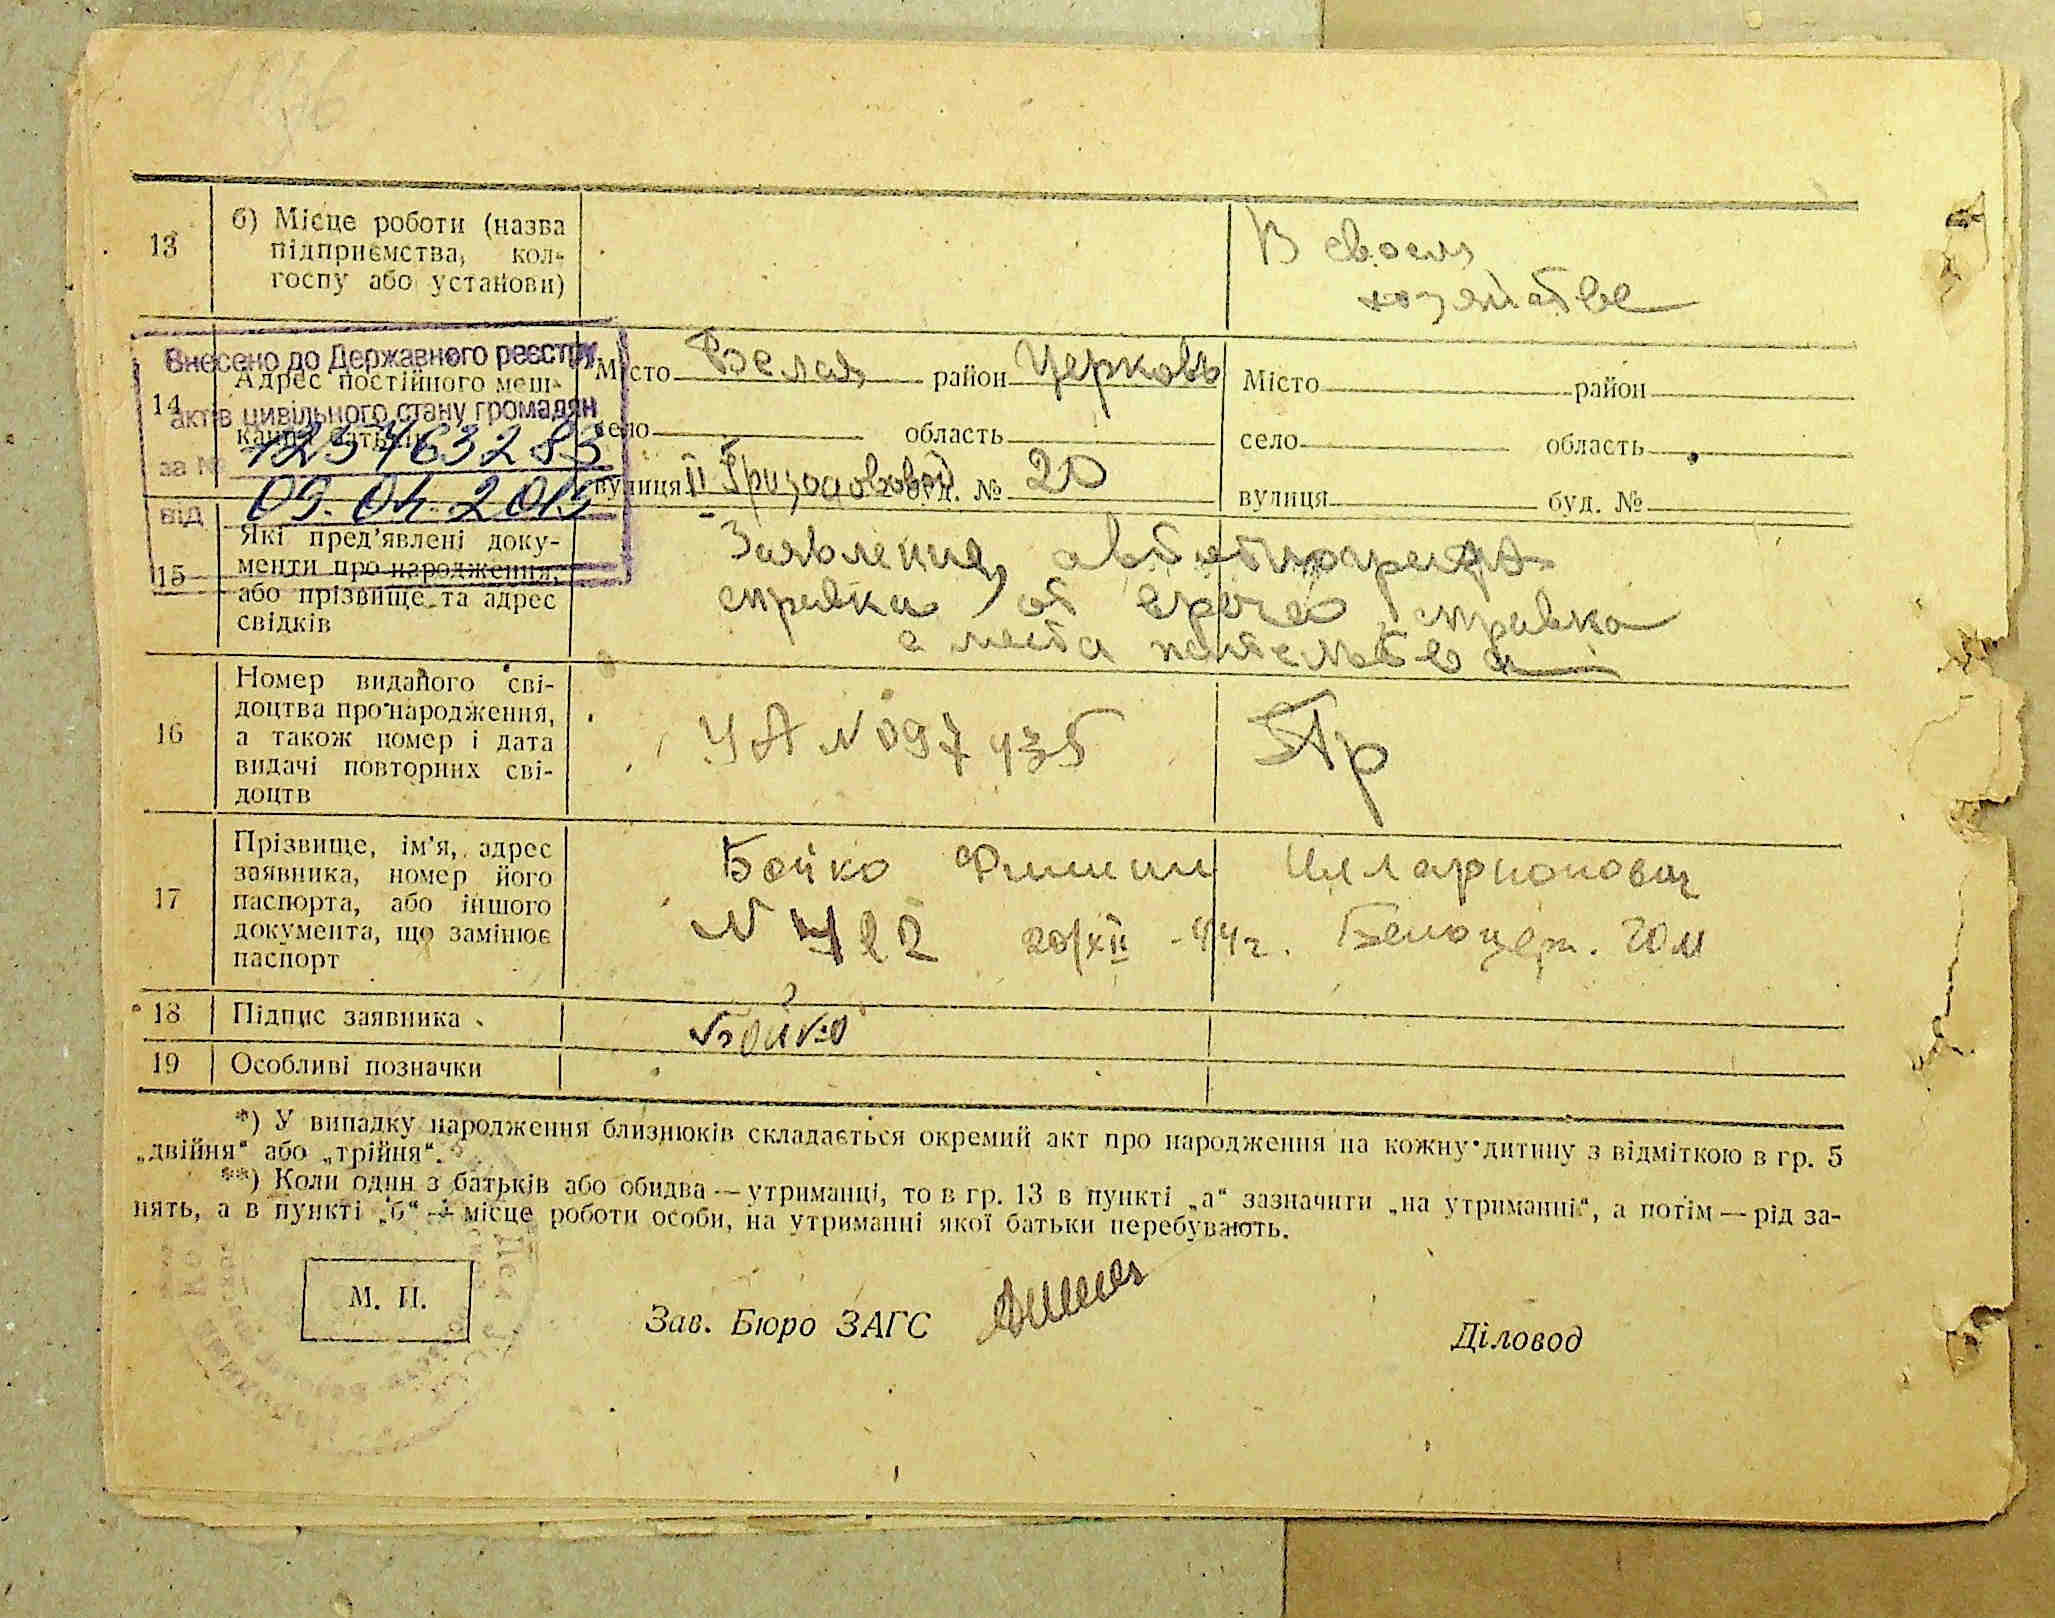 13
б) Місце роботи (назва
підприємства, кол-
госпу або установи)
В своем
хозяйстве
Внесено до Державного реєстру
актів цивільного стану громадян
за №
від 09.04.2015
14
Адрес постійного меш-
кання батьків
Місто Белая район Церковь
село область
вулиця II Гризодубовой буд. № 20
Місто район
село область
вулиця буд. №
15
Які пред'явлені доку-
менти про народження,
або прізвище та адрес
свідків
Заявление,
справка от врача, справка
с места жительства
16
Номер виданого сві-
доцтва про народження,
а також номер і дата
видачі повторних сві-
доцтв
УА № 097435
17
Прізвище, ім'я, адрес
заявника, номер його
паспорта, або іншого
документа, що замінює
паспорт
Бойко Филипп Илларионович
N 20/XII - 44 г. Белоцерк. ГОМ
18
Підпис заявника
Бойко
19
Особливі позначки
*) У випадку народження близнюків складається окремий акт про народження на кожну дитину з відміткою в гр. 5
„двійня“ або „трійня“.
**) Коли один з батьків або обидва — утриманці, то в гр. 13 в пункті „а“ зазначити „на утриманні“, а потім — рід за-
нять, а в пункті „б“ — місце роботи особи, на утриманні якої батьки перебувають.
М. П.
Зав. Бюро ЗАГС
Діловод